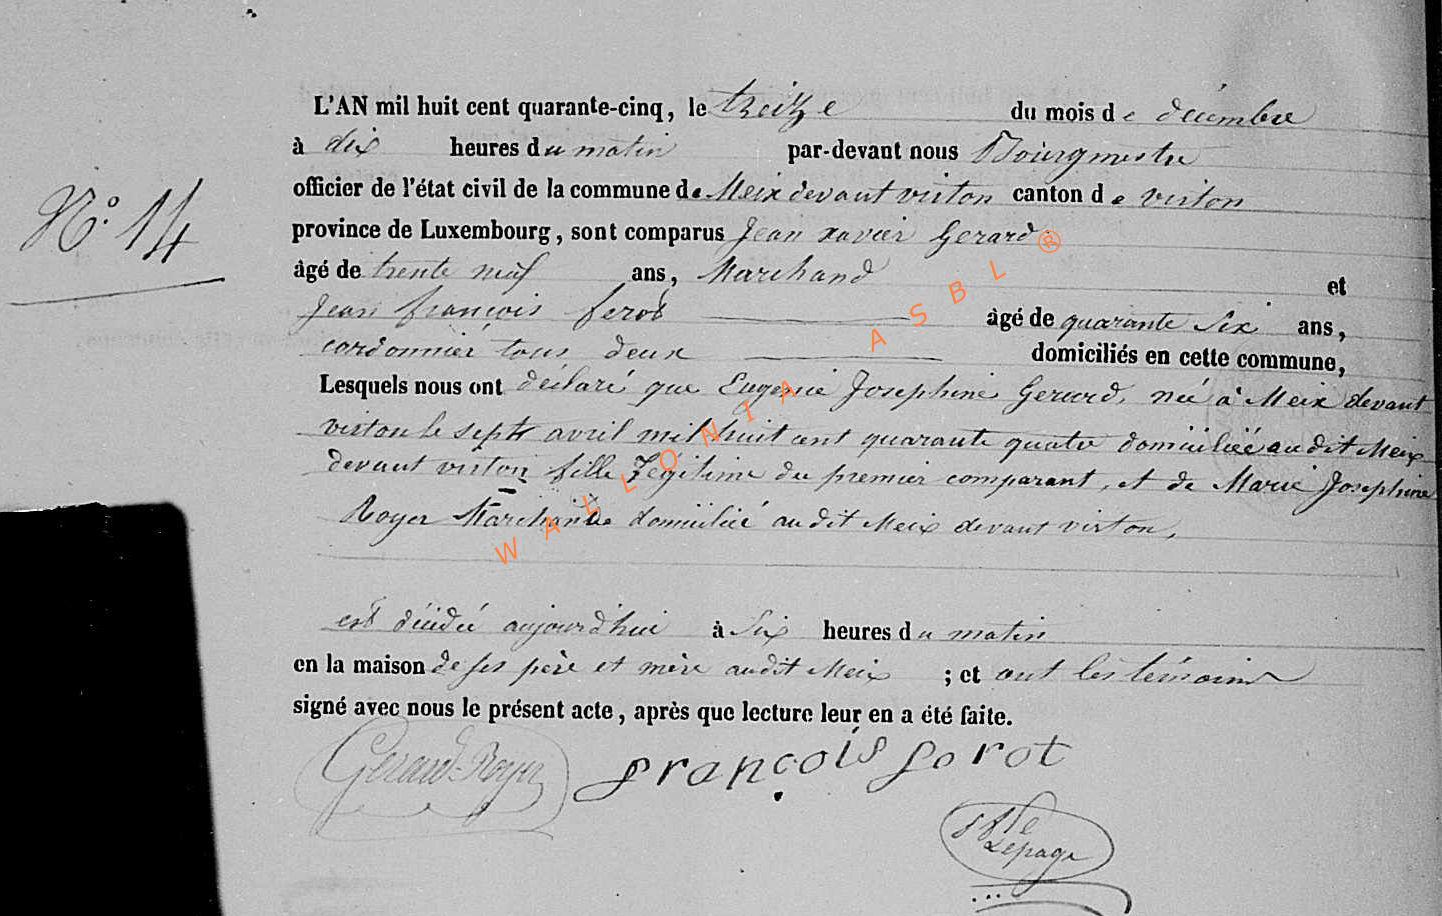 L'AN mil huit cent quarante-cinq, le treize du mois de décembre
à dix heures du matin par-devant nous Bourgmestre
officier de l'état civil de la commune de Meix devant virton canton de virton
N° 14
province de Luxembourg, sont comparus Jean xavier Gerard
âgé de trente neuf ans, Marchand et
Jean françois ferot âgé de quarante Six ans,
cordonnier tous deux domiciliés en cette commune,
Lesquels nous ont déclaré que Eugenie Josephine Gerard, née à Meix devant
virton le sept avril mil huit cent quarante quatre domiciliée audit Meix
devant virton fille Légitime du premier comparant, et de Marie Josephine
Royer Marchande domiciliée audit Meix devant virton,
est décédée aujourd'hui à Six heures du matin
en la maison de ses père et mère audit Meix ; et ont les témoins
signé avec nous le présent acte, après que lecture leur en a été faite.
Gerard-Royer françois ferot
Lepage
WALLONIA ASBL ®